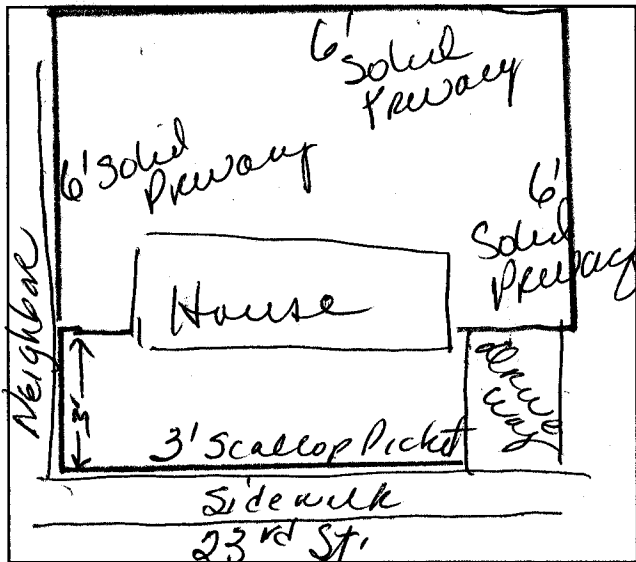 6'
Solid
Privacy
6' Solid
Privacy
6'
Solid
Privacy
Neighbor
House
3'
Drive
way
3' Scallop Picket
Sidewalk
23rd St.